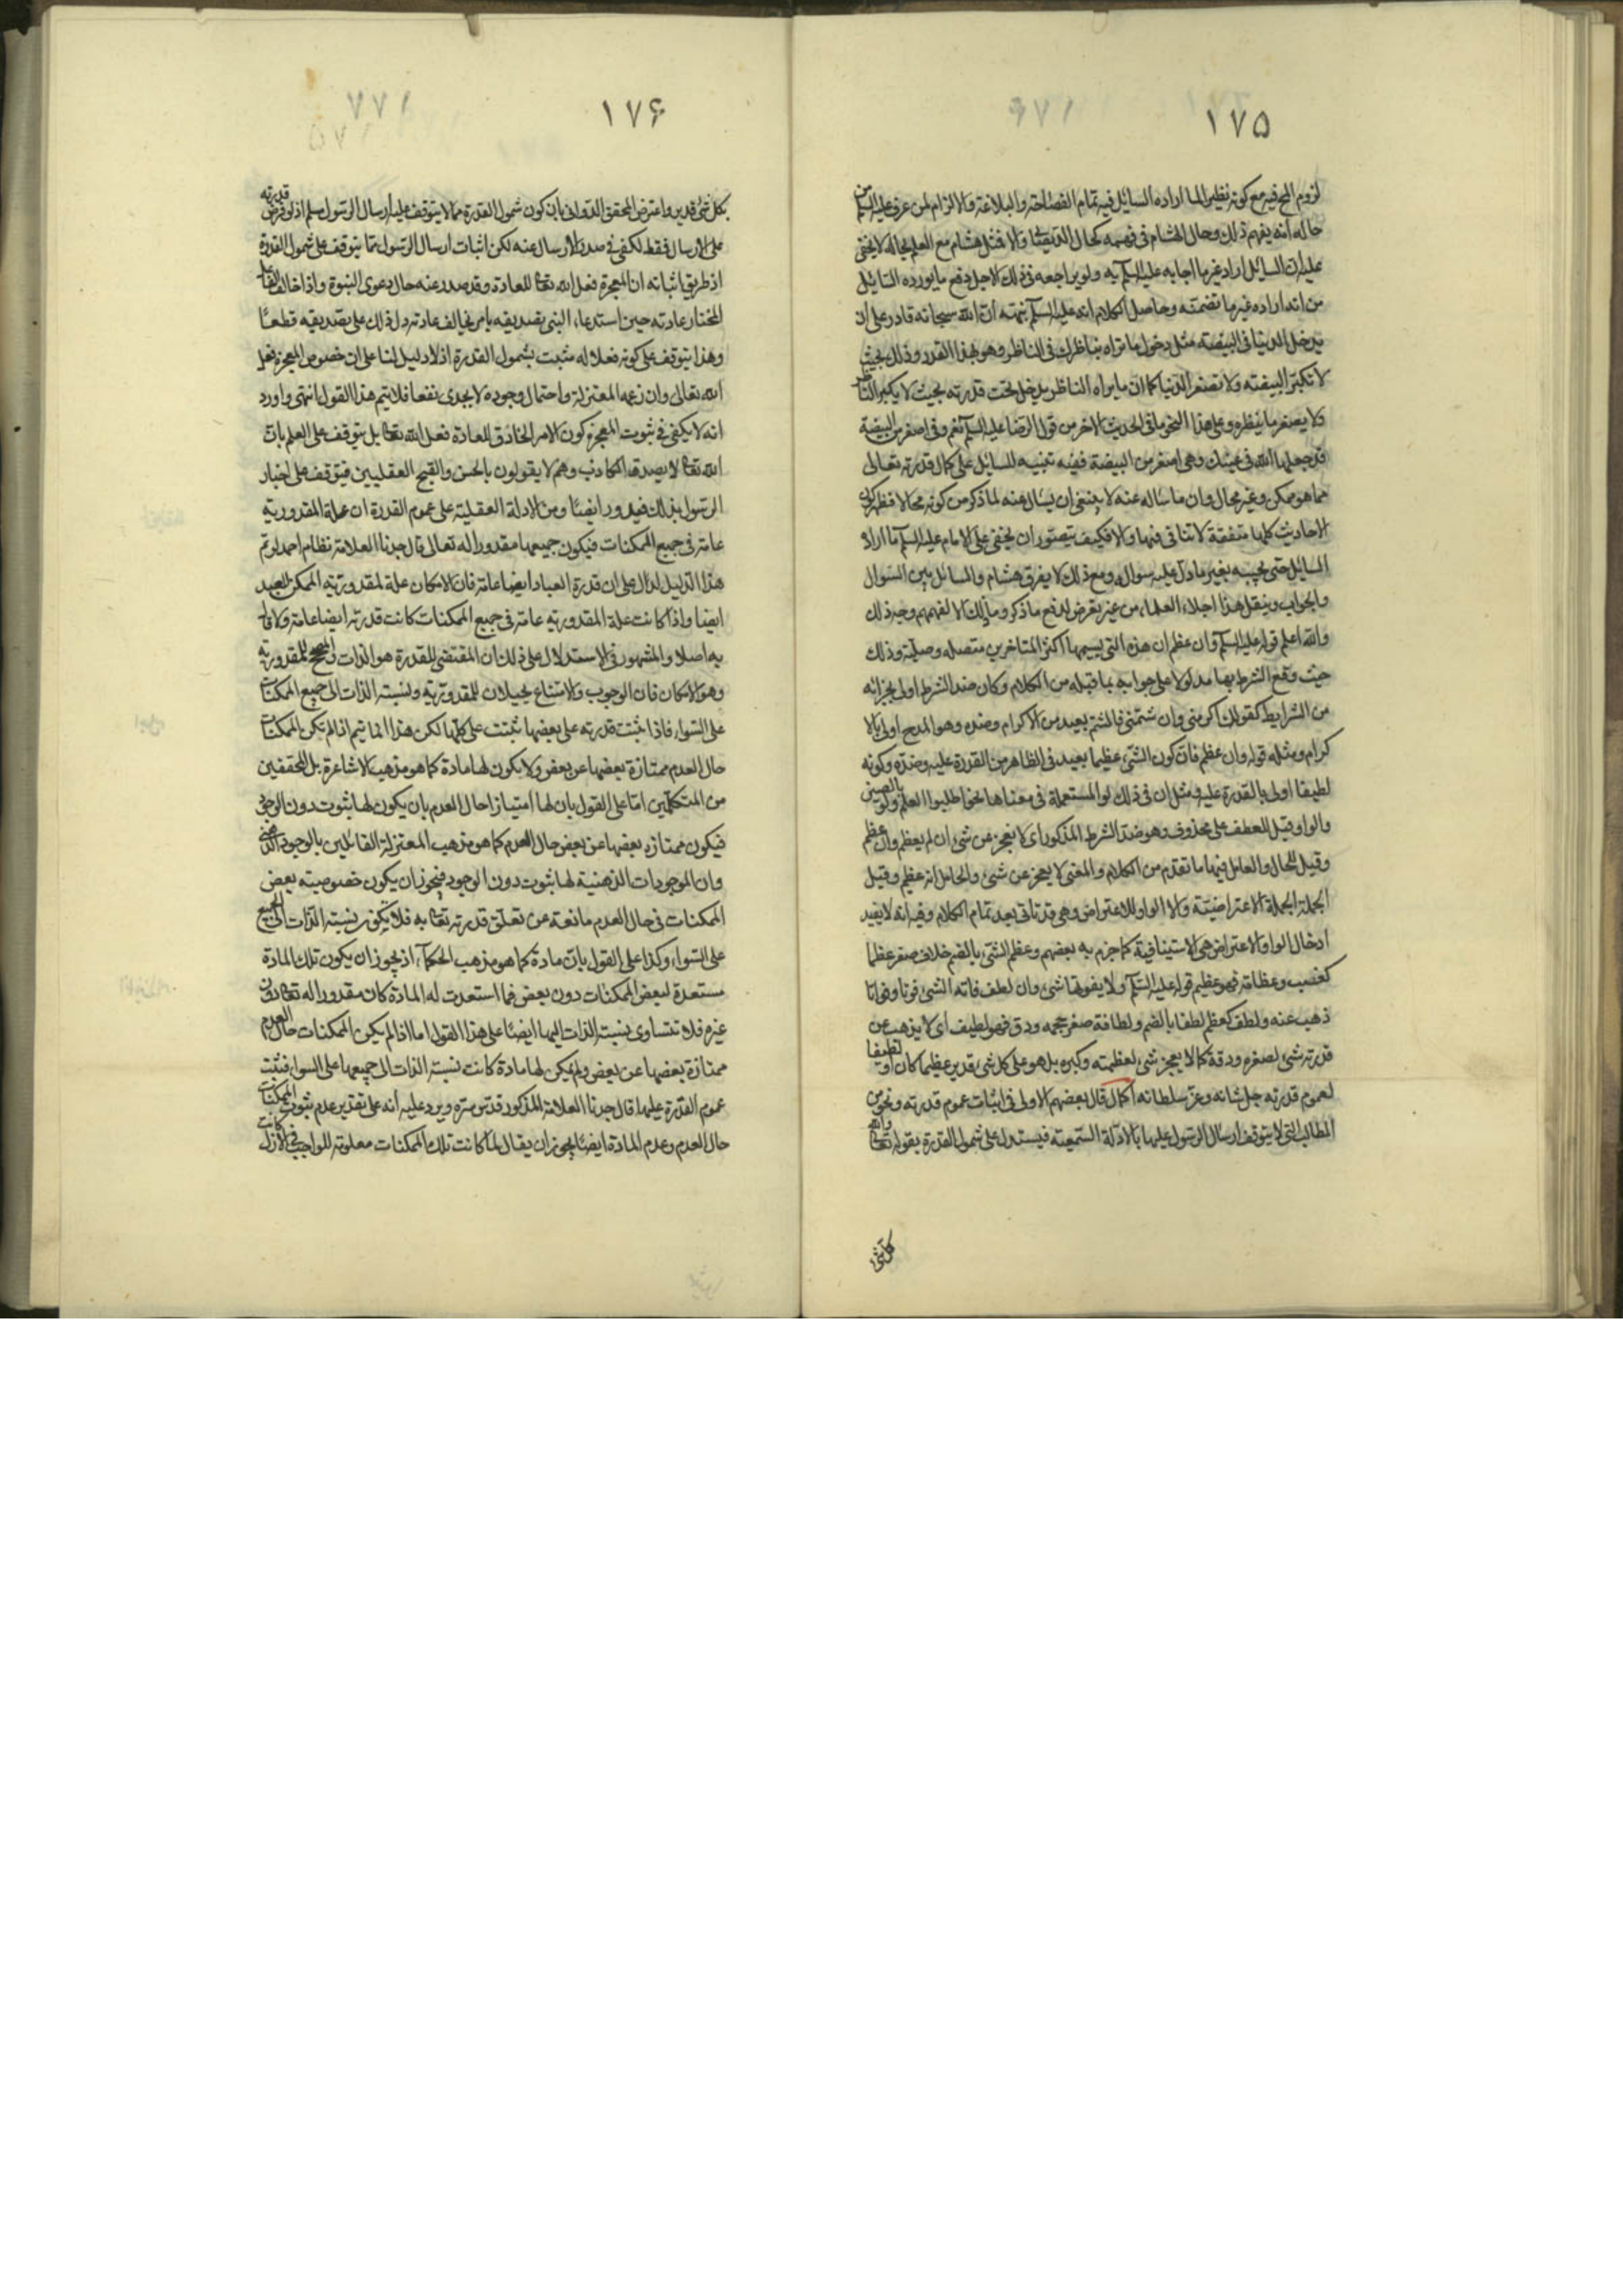 ١٧٥
لزوم المح فيه مع كونه نظيرا لما اراده السايل فيه تمام الفصاحة والبلاغة والالزام لمن عرف عليه السلم من
حاله انه يفهم ذلك وحال هشام فى فهمه كحال الديصانى والا فمثل هشام مع العلم بحاله لا يخفى
عليه ان السايل اراد غير ما اجابه عليه السلم به ولو يراجعه فى ذلك لاجل دفع ما يورده السايل
من انه اراده غير ما تضمنه وحاصل الكلام انه عليه السلم نبهه ان الله سبحانه قادر على ان
يدخل الدنيا فى البيضة مثل دخول ما تراه بناظرك فى الناظر وهو بهذا القدر وذلك بحيث
لا تكبر البيضة ولا تصغر الدنيا كما ان ما يراه الناظر يدخل تحت قدرته بحيث لا يكبر الناظر
ولا يصغر ما ينظره وعلى هذا النحو ما فى الحديث الاخر من قول الرضا عليه السلم نعم وفى اصغر من البيضة
قد جعلها الله فى عينك وهى اصغر من البيضة ففيه تنبيه للسايل على كمال قدرته تعالى
مما هو ممكن وغير محال وان ما ساله عنه لا ينبغى ان يسال عنه لما ذكر من كونه محالا فظهر ان
الاحاديث كلها متفقة لا تنافى فيها والا فكيف يتصور ان يخفى على الامام عليه السلم ما اراد
السايل حتى يجيبه بغير ما دل عليه سواله ومع ذلك لا يفرق هشام والسائل بين السوال
والجواب وينقل هذا اجلاء العلماء من غير تعرض لدفع ما ذكر وما ذلك الا لفهمهم وجه ذلك
والله اعلم قوله عليه السلم وان عظم ان هذه التى يسميها اكثر المتاخرين متصله وصلية وذلك
حيث وقع الشرط بها مدلولا على جوابه بما قبله من الكلام وكان ضد الشرط اولى بجزائه
من الشرايط كقولك اكرمنى وان شتمنى فالشتم بعيد من الاكرام وضده وهو المدح اولى بالا
كرام ومثله قوله وان عظم فان كون الشئ عظيما بعيد فى الظاهر من القدرة عليه وضده وكونه
لطيفا اولى بالقدرة عليه ومثل ان فى ذلك لو المستعملة فى معناها نحو اطلبوا العلم ولو بالصين
والواو قيل للعطف على محذوف وهو ضد الشرط المذكور اى لا يعجز عن شئ ان لم يعظم وان عظم
وقيل للحال والعامل فيها ما تقدم من الكلام والمعنى لا يعجز عن شئ والحال انه عظيم وقيل
الجملة الاعتراضية والا الواو للاعتراض وهى قد تاتى بعد تمام الكلام وفيه انه لا يفيد
ادخال الواو والاعتراض هى الاستينافية كما جزم به بعضهم وعظم الشئ بالضم خلاف صغر عظما
كعنب وعظامة فهو عظيم قوله عليه السلم ولا يفوتها شئ وان لطف فاته الشئ فوتا وفواتا
ذهب عنه ولطف كعظم لطفا بالضم ولطافة صغر حجمه ودق فهو لطيف اى لا يذهب عن
قدرته شئ لصغره ودقة كما لا يعجز شئ لعظمته وكبره بل هو على كل شئ قدير عظيما كان او لطيفا
لعموم قدرته جل شانه وعز سلطانه اكمال قال بعضهم الاولى فى اثبات عموم قدرته ونحوه من
المطالب التى لا يتوقف ارسال الرسول عليها بالادلة السمعية فيستدل على شمول القدرة بقوله تعالى والله
كل شئ
١٧۶
بكل شئ قدير واعترض المحقق الدوانى بان كون شمول القدرة مما لا يتوقف عليه ارسال الرسول مسلم اذ لو فرض قدرته
على الارسال فقط لكفى فى صدور الارسال عنه لكن اثبات ارسال الرسول مما يتوقف على شمول القدرة
اذ طريق اثباته ان المعجزة فعل الله تعالى للعادة وقد صدر عنه حال دعوى النبوة واذا خالف الفاعل
المختار عادته حين استدعاء النبى تصديقه بامر يخالف عادته دل ذلك على تصديقه قطعا
وهذا يتوقف على كونه فعلا له مثبت بشمول القدرة اذ لا دليل لنا على ان خصوص المعجزة فعل
الله تعالى وان زعمه المعتزلة واحتمال وجوده لا يجدى نفعا فلا يتم هذا القول انتهى واورد
انه لا يكفى فى ثبوت المعجزة كون الامر الخارق للعادة فعل الله تعالى بل يتوقف على العلم بان
الله تعالى لا يصدق الكاذب وهم لا يقولون بالحسن والقبح العقليين فيتوقف على اخبار
الرسول بذلك فيدور ايضا ومن الادلة العقلية على عموم القدرة ان علة المقدورية
عامة فى جميع الممكنات فيكون جميعها مقدورا له تعالى قال جدنا العلامة نظام احمد لو تم
هذا الدليل لدل على ان قدرة العباد ايضا عامة فان الامكان علة لمقدورية الممكن للعبد
ايضا واذا كانت علة المقدورية عامة فى جميع الممكنات كانت قدرته ايضا عامة ولا قائل
به اصلا والمشهور فى الاستدلال على ذلك ان المقتضى للقدرة هو الذات والمصحح للمقدورية
وهو الامكان فان الوجوب والامتناع يحيلان للمقدورية ونسبة الذات الى جميع الممكنات
على السواء فاذا ثبتت قدرته على بعضها ثبتت على كلها لكن هذا انما يتم اذا لم تكن الممكنات
حال العدم ممتازة بعضها عن بعض ولا يكون لها مادة كما هو مذهب الاشاعرة بل المحققين
من المتكلمين اما على القول بان لها امتيازا حال العدم بان يكون لها ثبوت دون الوجود
فيكون ممتازه بعضها عن بعض حال العدم كما هو مذهب المعتزلة القائلين بالوجود الذهنى
وان الموجودات الذهنية لها ثبوت دون الوجود فيجوز ان يكون خصوصيته بعض
الممكنات فى حال العدم مانعة عن تعلق قدرته تعالى به فلا يكون نسبة الذات الى الجميع
على السواء وكذا على القول بان مادة كما هو مذهب الحكماء اذ يجوز ان يكون تلك المادة
مستعدة لبعض الممكنات دون بعض فما استعدت له المادة كان مقدورا له تعالى دون
غيره فلا تتساوى نسبة الذات اليها ايضا على هذا القول اما اذا لم يكن الممكنات حال العدم
ممتازة بعضها عن بعض ولم يكن لها مادة كانت نسبة الذات الى جميعها على السواء فثبت
عموم القدرة عليها قال جدنا العلامة المذكور قدس سره ويرد عليه انه على تقدير عدم ثبوت الممكنات
حال العدم وعدم المادة ايضا يجوز ان يقال لما كانت تلك الممكنات معلومة للواجب فى الازل كانت